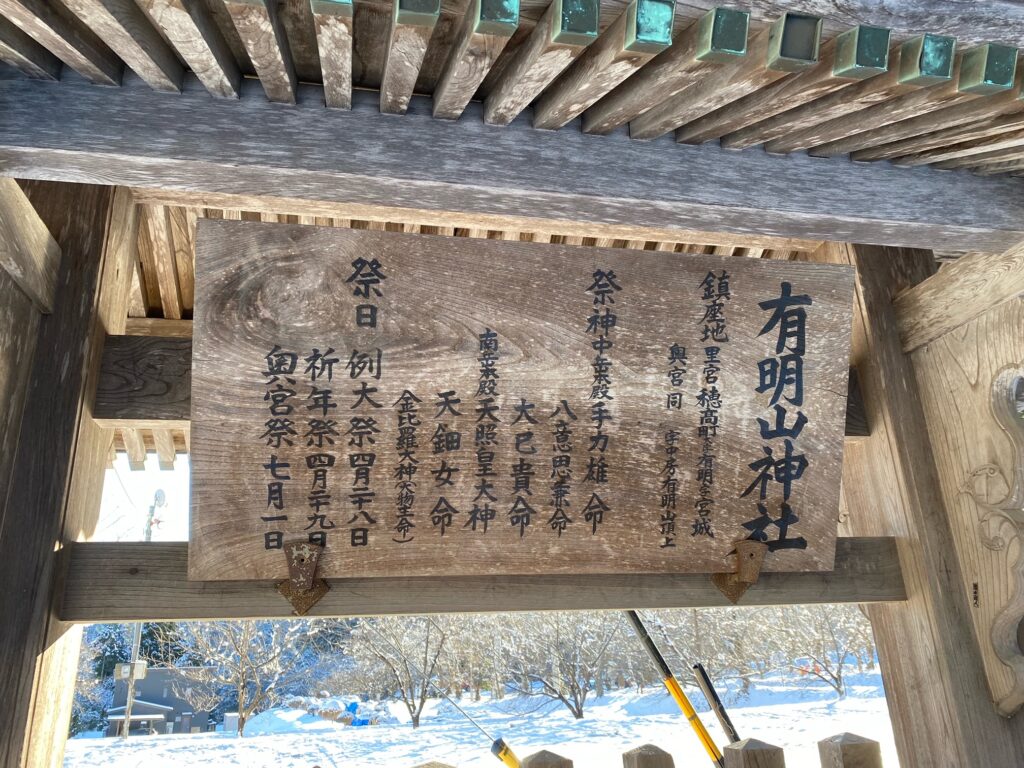 有明山神社
鎮座地 里宮 穂高町字有明字宮城
奥宮 同 字中房有明山頂上
祭神 中岳表殿 手力雄命
八意思兼命
大己貴命
南岳表殿 天照皇大神
天鈿女命
金比羅大神
祭日 例大祭 四月二十八日
祈年祭 四月二十九日
奥宮祭 七月一日